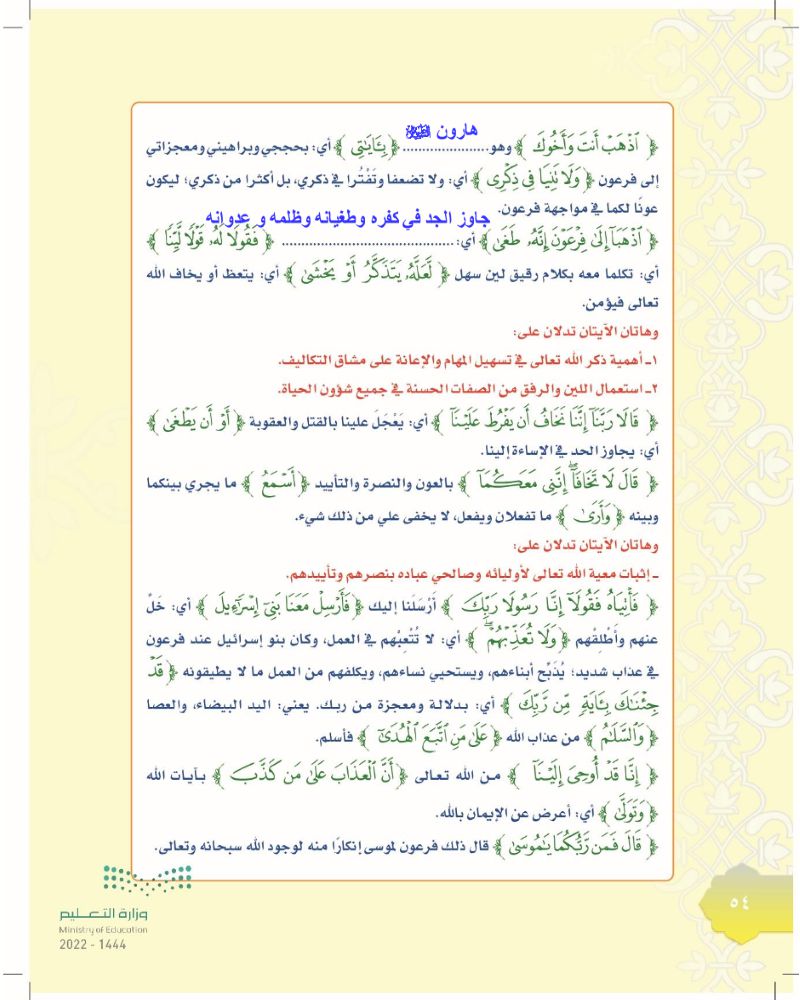 هارون عليه السلام
﴿ ٱذۡهَبۡ أَنتَ وَأَخُوكَ ﴾ وهو......................﴿ بِـَٔايَٰتِي ﴾ أي: بحججي وبراهيني ومعجزاتي
إلى فرعون ﴿ وَلَا تَنِيَا فِي ذِكۡرِي ﴾ أي: ولا تضعفا وتَفْتُرا في ذكري، بل أكثرا من ذكري؛ ليكون
عونًا لكما في مواجهة فرعون.
جاوز الجد في كفره وطغيانه وظلمه و عدوانه
﴿ ٱذۡهَبَآ إِلَىٰ فِرۡعَوۡنَ إِنَّهُۥ طَغَىٰ ﴾ أي: ............................................ ﴿ فَقُولَا لَهُۥ قَوۡلٗا لَّيِّنٗا ﴾
أي: تكلما معه بكلام رقيق لين سهل ﴿ لَّعَلَّهُۥ يَتَذَكَّرُ أَوۡ يَخۡشَىٰ ﴾ أي: يتعظ أو يخاف الله
تعالى فيؤمن.
وهاتان الآيتان تدلان على:
١ـ أهمية ذكر الله تعالى في تسهيل المهام والإعانة على مشاق التكاليف.
٢ـ استعمال اللين والرفق من الصفات الحسنة في جميع شؤون الحياة.
﴿ قَالَا رَبَّنَآ إِنَّنَا نَخَافُ أَن يَفۡرُطَ عَلَيۡنَآ ﴾ أي: يَعْجَلَ علينا بالقتل والعقوبة ﴿ أَوۡ أَن يَطۡغَىٰ ﴾
أي: يجاوز الحد في الإساءة إلينا.
﴿ قَالَ لَا تَخَافَآۖ إِنَّنِي مَعَكُمَآ ﴾ بالعون والنصرة والتأييد ﴿ أَسۡمَعُ ﴾ ما يجري بينكما
وبينه ﴿ وَأَرَىٰ ﴾ ما تفعلان ويفعل، لا يخفى علي من ذلك شيء.
وهاتان الآيتان تدلان على:
ـ إثبات معية الله تعالى لأوليائه وصالحي عباده بنصرهم وتأييدهم.
﴿ فَأۡتِيَاهُ فَقُولَآ إِنَّا رَسُولَا رَبِّكَ ﴾ أَرْسَلَنا إليك ﴿ فَأَرۡسِلۡ مَعَنَا بَنِيٓ إِسۡرَٰٓءِيلَ ﴾ أي: خَلِّ
عنهم وأَطْلِقْهم ﴿ وَلَا تُعَذِّبۡهُمۡۖ ﴾ أي: لا تُتْعِبْهم في العمل، وكان بنو إسرائيل عند فرعون
في عذاب شديد؛ يُذَبِّح أبناءهم، ويستحيي نساءهم، ويكلفهم من العمل ما لا يطيقونه ﴿ قَدۡ
جِئۡنَٰكَ بِـَٔايَةٖ مِّن رَّبِّكَ ﴾ أي: بدلالة ومعجزة من ربك. يعني: اليد البيضاء، والعصا
﴿ وَٱلسَّلَٰمُ ﴾ من عذاب الله ﴿ عَلَىٰ مَنِ ٱتَّبَعَ ٱلۡهُدَىٰٓ ﴾ فأسلم.
﴿ إِنَّا قَدۡ أُوحِيَ إِلَيۡنَآ ﴾ من الله تعالى ﴿ أَنَّ ٱلۡعَذَابَ عَلَىٰ مَن كَذَّبَ ﴾ بآيات الله
﴿ وَتَوَلَّىٰ ﴾ أي: أعرض عن الإيمان بالله.
﴿ قَالَ فَمَن رَّبُّكُمَا يَٰمُوسَىٰ ﴾ قال ذلك فرعون لموسى إنكارًا منه لوجود الله سبحانه وتعالى.
٥٤
وزارة التعليم
Ministry of Education
2022 - 1444